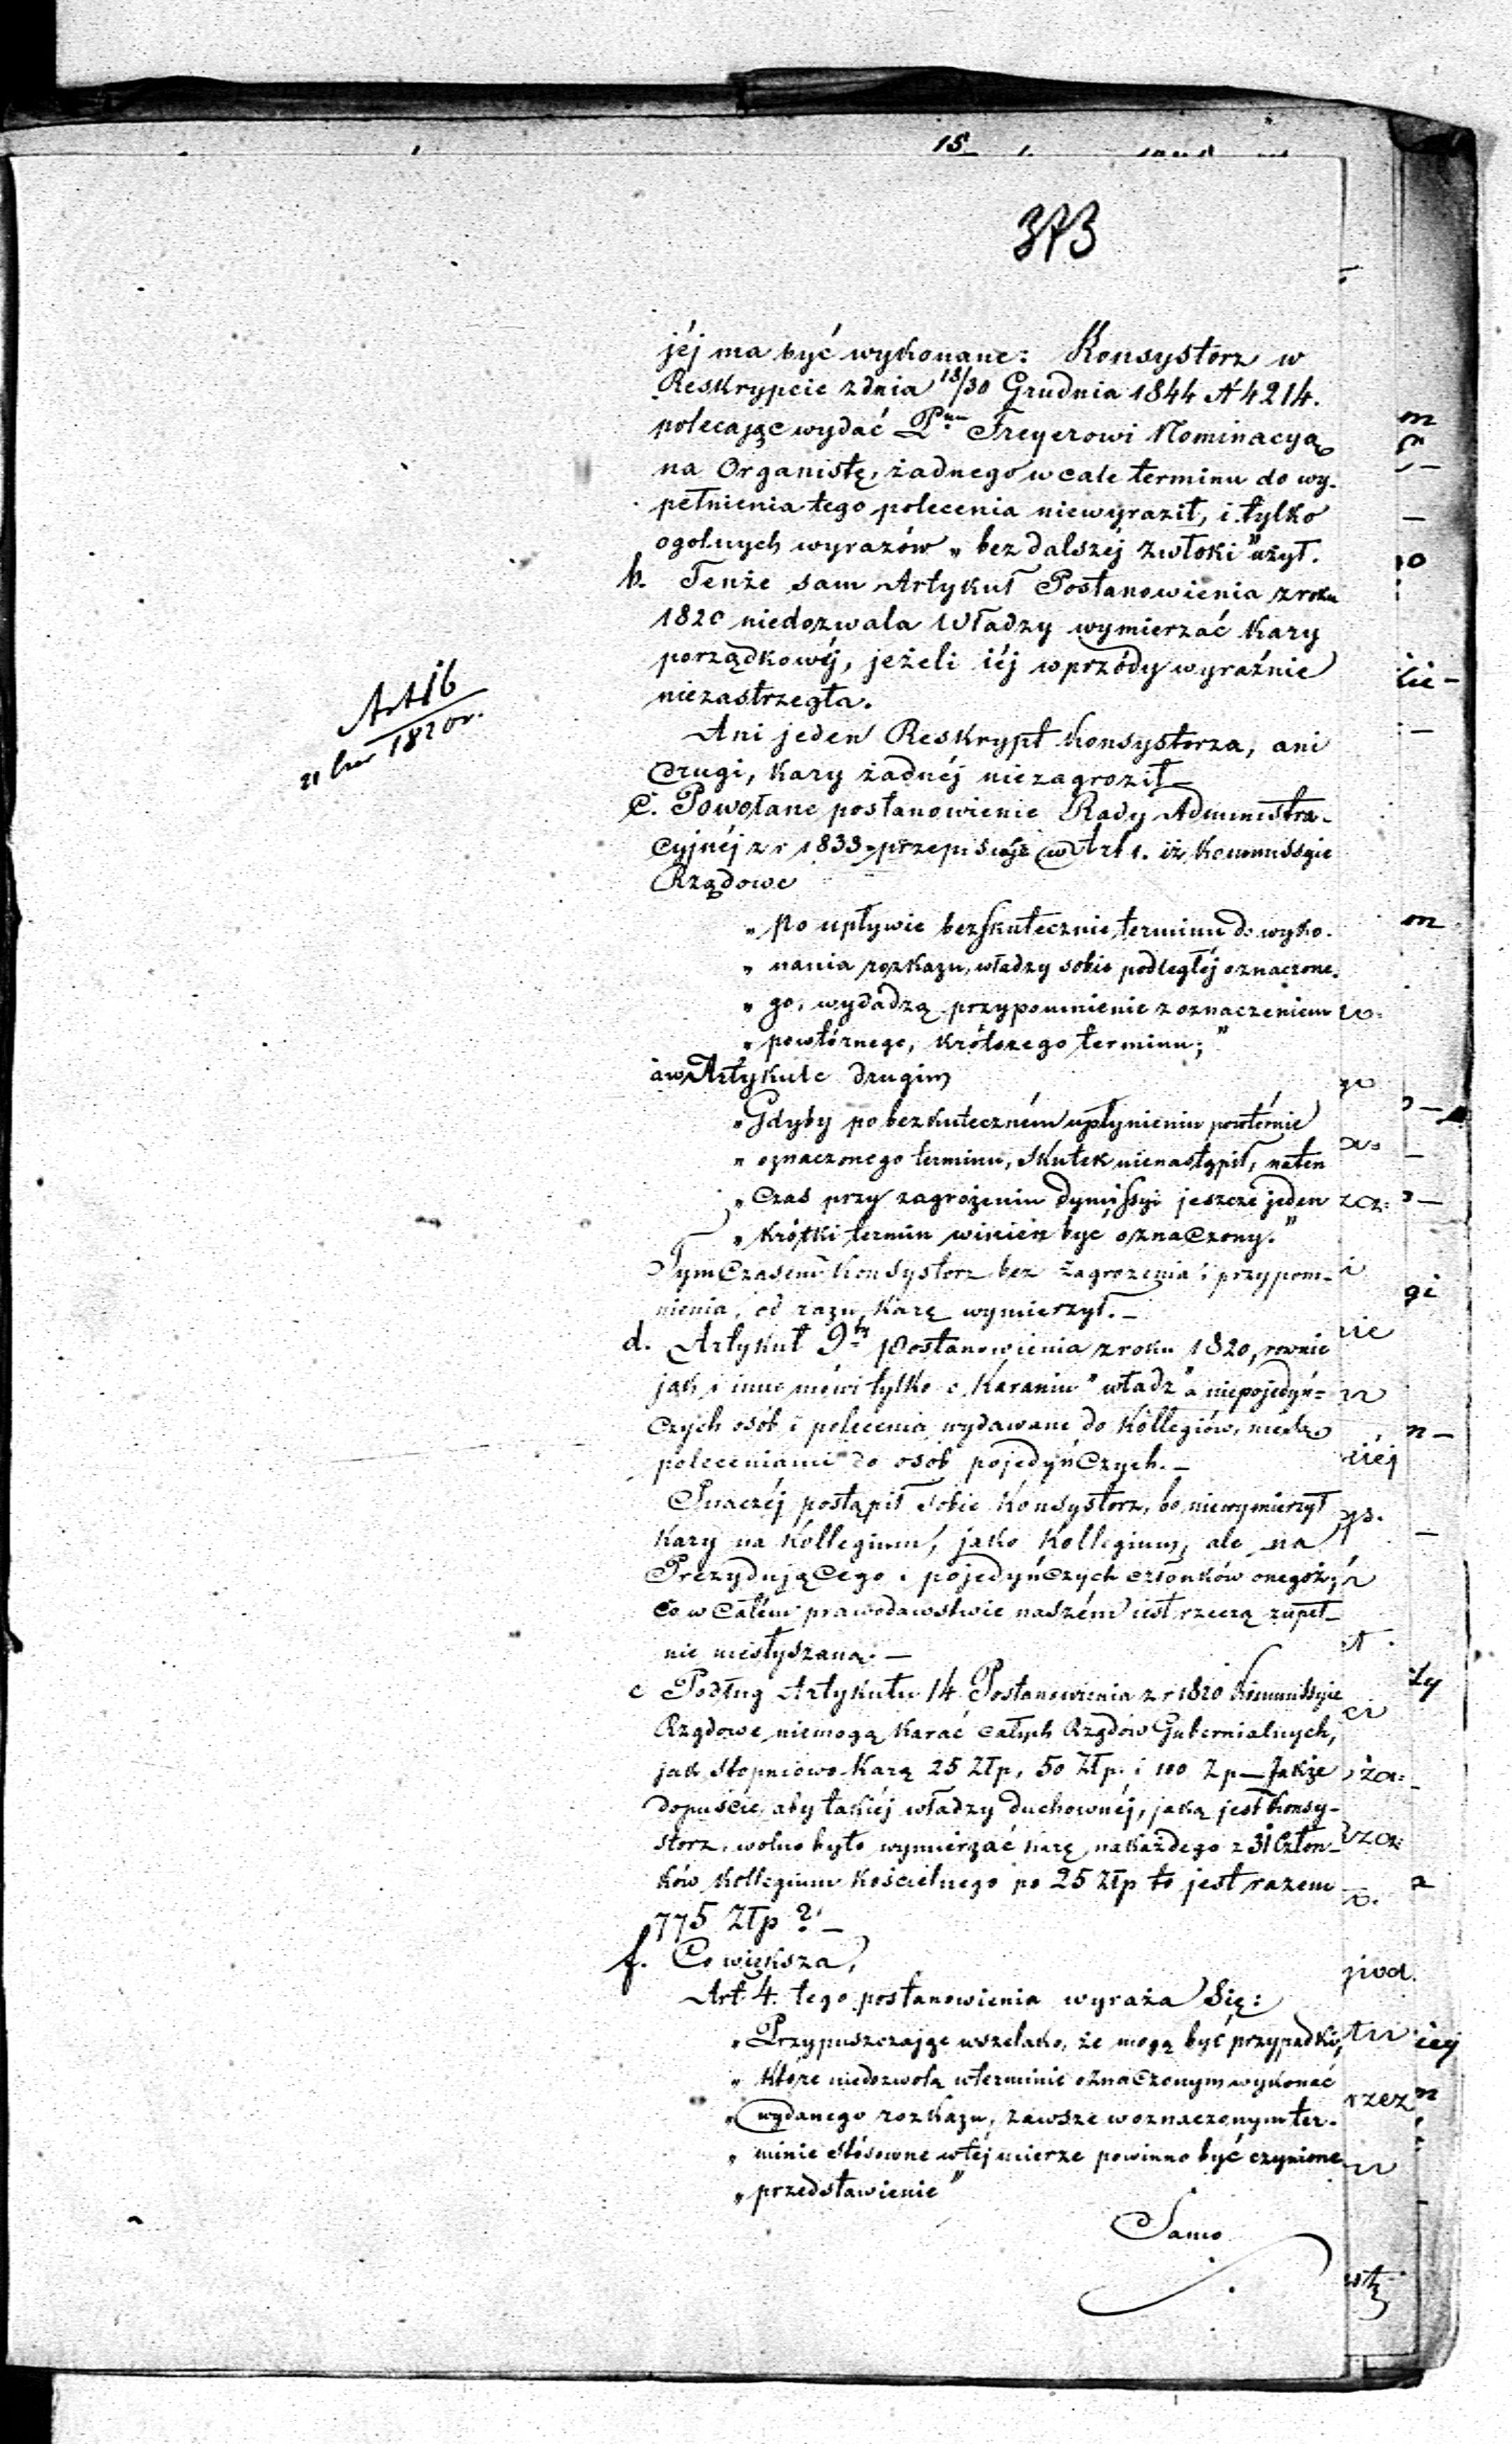 373
jéj ma być wykonane: Konsystorz w
Reskrypcie z dnia 18/30 Grudnia 1844 N 4214.
polecając wydać Pnu Freyerowi Nominacyą
na Organistę, żadnego wcale terminu do wy-
pełnienia tego polecenia niewyraził, i tylko
ogolnych wyrazów „bez dalszéj zwłoki" użył.
b. Tenże sam Artykuł Postanowienia z roku
1820 niedozwala Władzy wymierzać Kary
porządkowéj, jeżeli iéj wprzódy wyraźnie
niezastrzegła.
Art 16
1820 r.
Ani jeden Reskrypt Konsystorza, ani
drugi, Kary żadnéj niezagroził —
c. Powołane postanowienie Rady Administra-
cyjnéj z r 1833 przepisuje w Art 1. iż Kommissyie
Rządowe
„ po upływie bezskutecznie terminu do wyko-
„ nania rozkazu, władzy sobie podległéj oznaczone-
„ go, wydadzą przypomnienie z oznaczeniem
„ powtórnego, krótszego terminu;"
a w Artykule drugim
„ Gdyby po bezkuteczném upłynieniu powtórnie
„ oznaczonego terminu, skutek nienastąpił, naten
„ czas przy zagrożeniu dymissyi jeszcze jeden
„ krótki termin winien być oznaczony."
Tymczasem Konsystorz bez zagrożenia i przypom-
nienia, od razu Karę wymierzył. —
d. Artykuł 9ty Postanowienia z roku 1820, rownie
jak i inne mówi tylko o Karaniu "władz" a niepojedyń-
czych osób i polecenia wydawane do Kollegiów, niesą
poleceniami do osób pojedyńczych. —
Inaczéj postąpił sobie Konsystorz, bo niewymierzył
Kary na Kollegium, jako Kollegium, ale na
Prezydującego i pojedyńczych członków onegoż,
co w całém prawodawstwie naszém iest rzeczą zupeł-
nie niesłyszaną. —
e Podług Artykułu 14 Postanowienia z r 1820 Kommissyie
Rządowe niemogą karać całych Rządów Gubernialnych,
jak stopniowo Karą 25 Złp, 50 Złp. i 100 Zp — Jakże
dopuścić, aby takiéj władzy duchownéj, jaką jest Konsy-
storz, wolno było wymierzać karę na każdego z 31 Człon-
ków Kollegium Kościelnego po 25 złp to jest razem
775 Złp ? —
f. Co większa,
Art 4. tego postanowienia wyraża się:
„ Przypuszczając wszelako, że mogą być przypadki,
„ które niedozwolą w terminie oznaczonym wykonać
„ wydanego rozkazu, zawsze w oznaczonym ter-
„ minie stósowne w téj mierze powinno być czynione
„ przedstawienie"
Samo